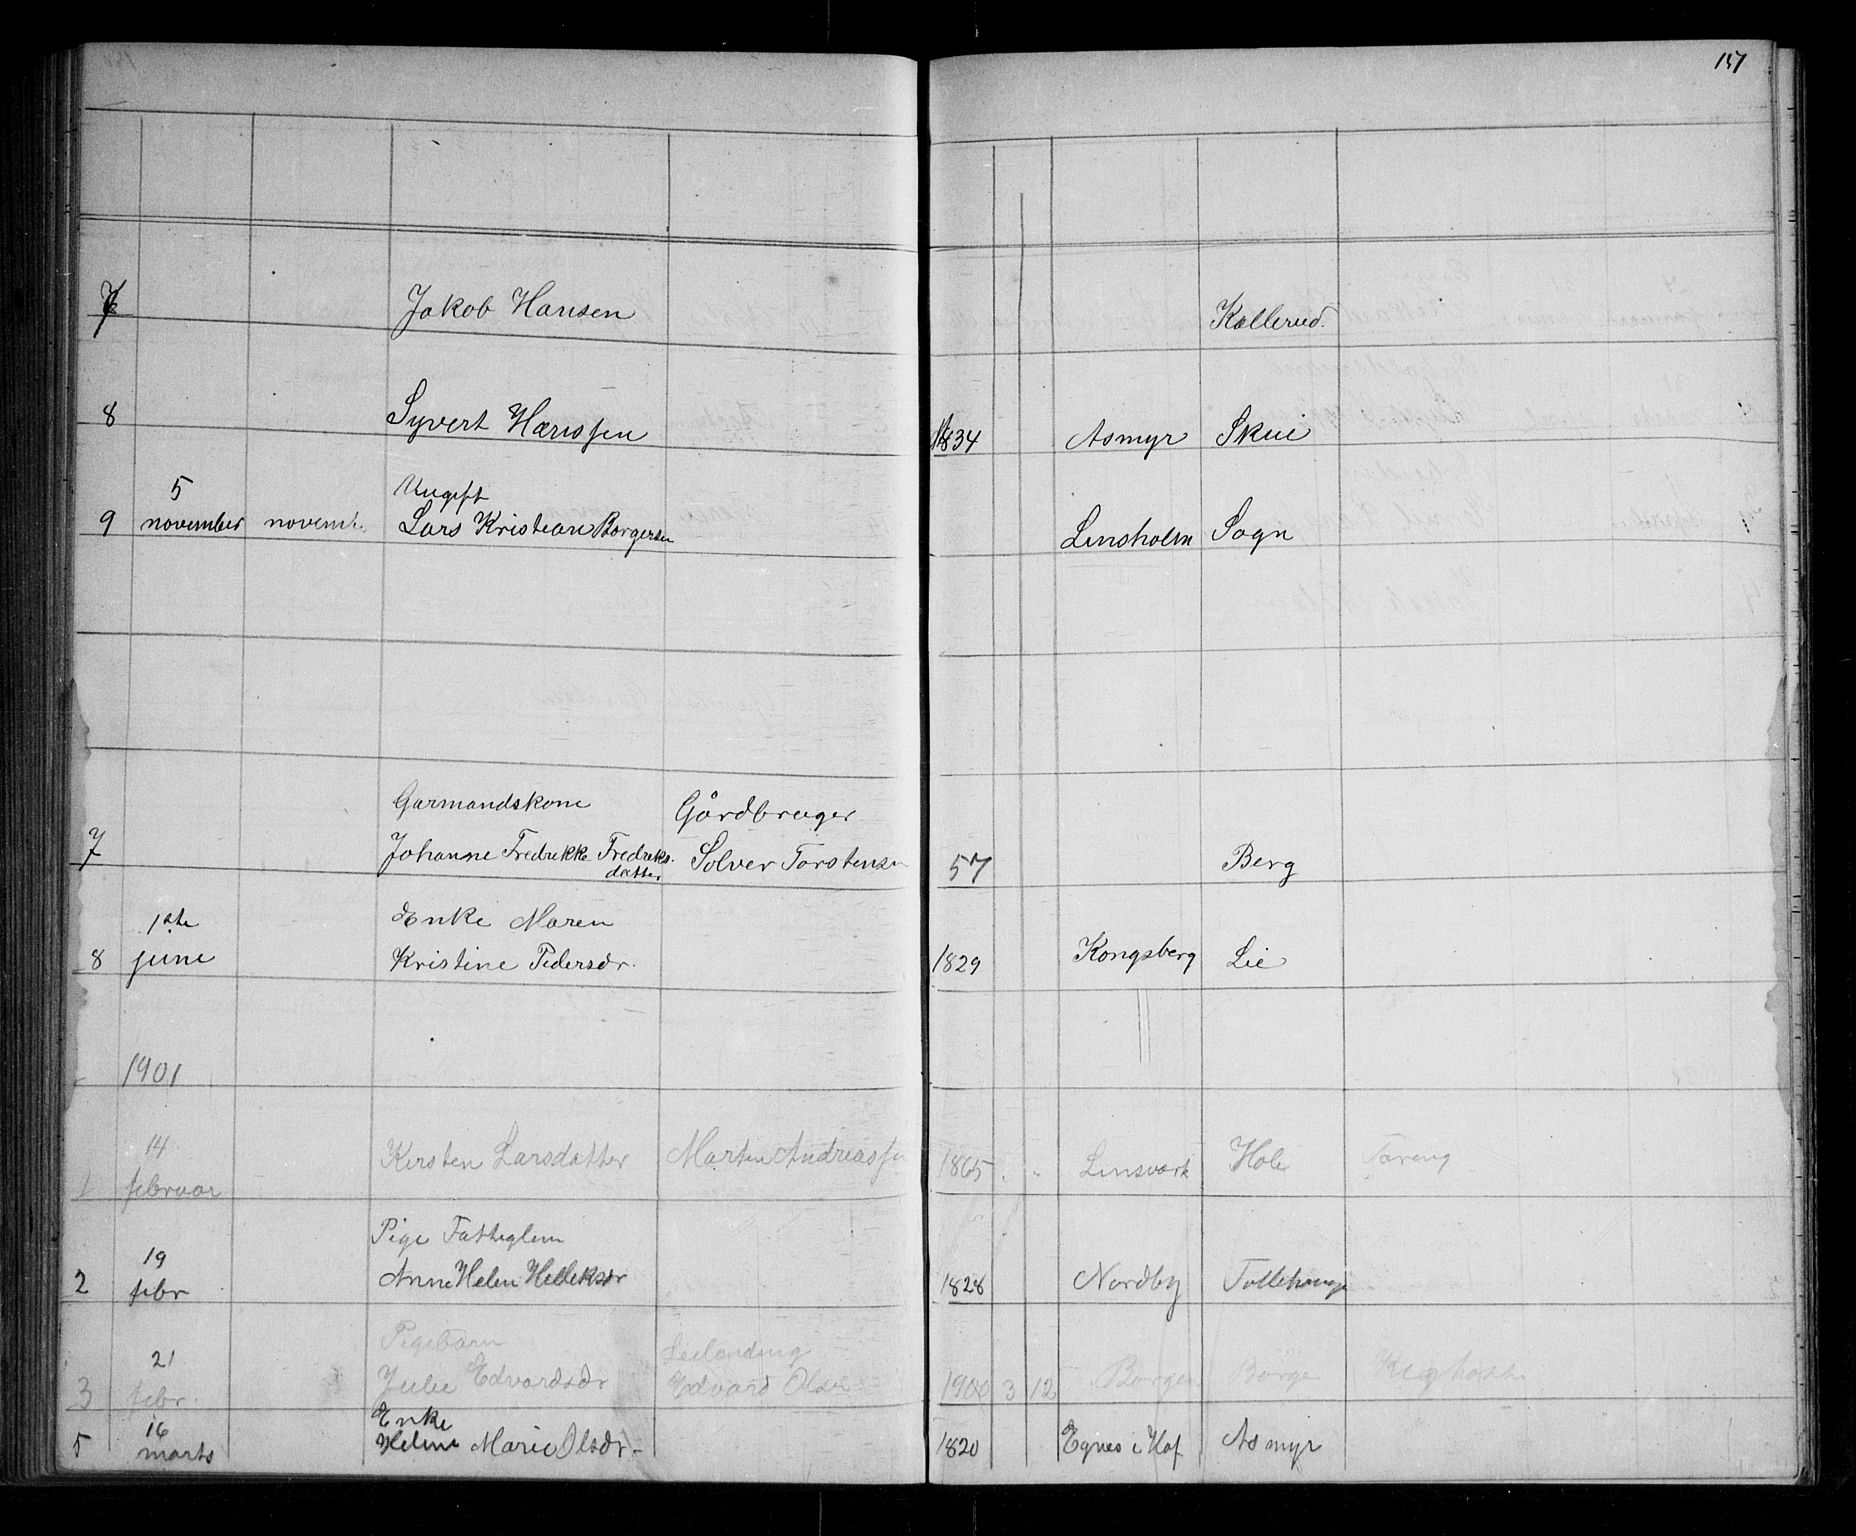 157
7 Jakob Hansen Kollerud.
8 Syvert Hansen 1834 Asmyr Skui
5 Ungift
9 november novemb. Lars Kristian Borgersen Linsholm Sogn
Garmandskone Gårdbruger
7 Johanne Fredrikke Fredriks. Solver Torstensen 57 Berg
datter
1ste Enke Maren
8 juni Kristine Pedersdr. 1829 Kongsberg Lie
1901
14 Kirsten Larsdatter Martin Andreassen 1865 Hole Tæring
1 februar
Pige
19
2 febr Anne Helen Helleksdr 1828 Nordby
Pigebarn Leilænding
21
3 febr. Julie Edvardsdr Edvard Olsen 1900 3 12 Borgen Borge Kighoste
16 Enke
5 marts Helene Marie Olsdr. 1820 Egnes i Hof Asmyr